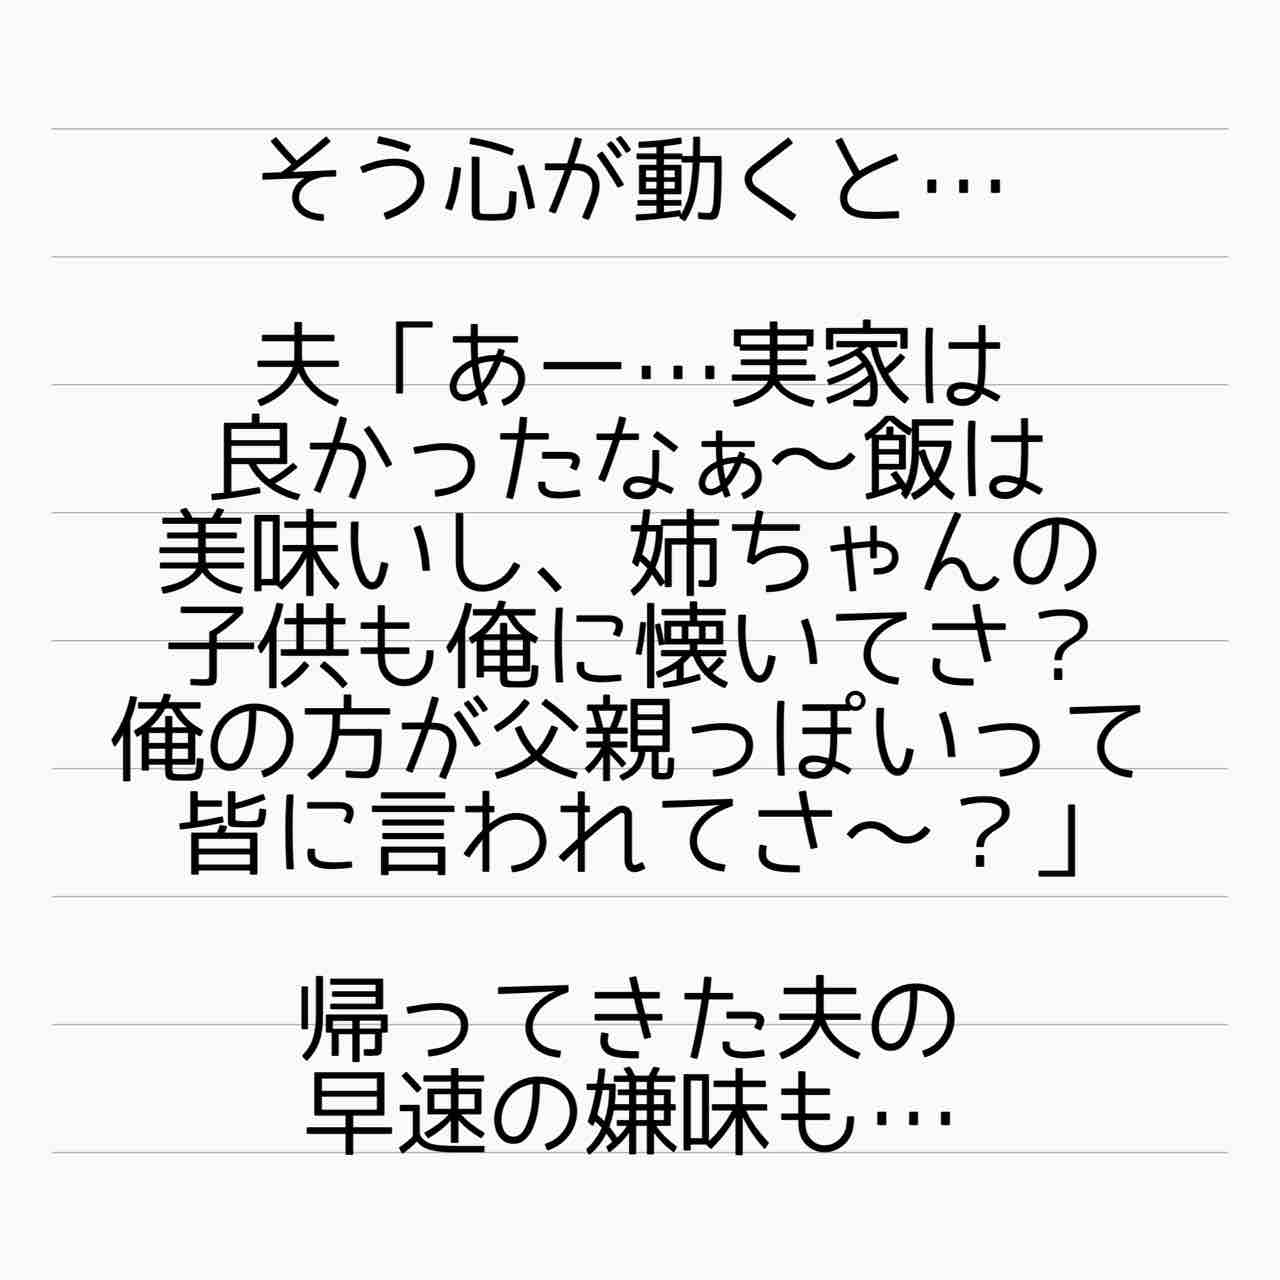 そう心が動くと…
夫「あー…実家は
良かったなぁ〜飯は
美味いし、姉ちゃんの
子供も俺に懐いてさ？
俺の方が父親っぽいって
皆に言われてさ〜？」
帰ってきた夫の
早速の嫌味も…